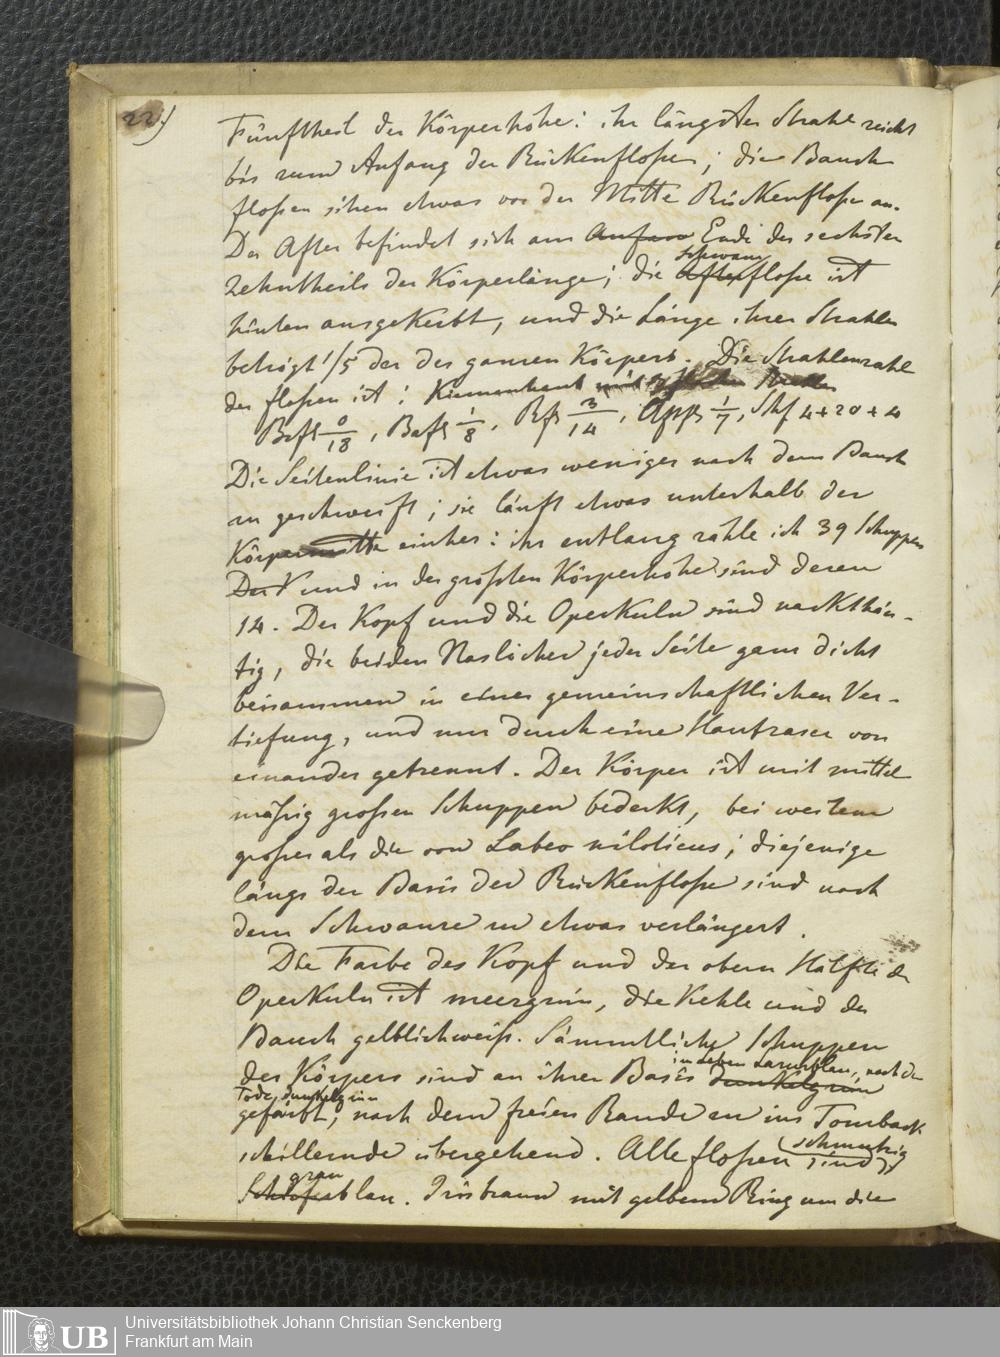 22)
Fünftheil der Körperhöhe: ihr längster Strahl reicht
bis zum Anfang der Rückenflosse; die Bauch
flossen sizen etwas vor der Mitte Rückenflosse an.
Der After befindet sich am Anfang Ende des sechsten
schwanz
Zehntheils der Körperlänge; die Afterflosse ist
hinten ausgekerbt, und die Länge ihrer Strahlen
beträgt 1/5 der des ganzen Körpers. Die Strahlenzahl
der flossen ist: Kiemenhaut mit Strahlen
Brfl 0/18, Bafl 1/8, Rfl 3/14, Affl 1/7, Shf 4+20+4
Die Seitenlinie ist etwas weniges nach dem Bauch
zu geschweift; sie läuft etwas unterhalb der
Körpermitte einher: ihr entlang zähle ich 39 Schuppen
Der und in der größten Körperhöhe sind deren
14. Der Kopf und die Operkuln sind nackthäu-
tig, die beiden Naslöcher jeder Seite ganz dicht
beisammen in einer gemeinschaftlichen Ver-
tiefung, und nur durch eine Hautfaser von
einander getrennt. Der Körper ist mit mittel
mäßig großen Schuppen bedeckt, bei weitem
großer als die von Labeo niloticus; diejenige
längs der Basis der Rückenflosse sind nach
dem Schwanze zu etwas verlängert.
Die Farbe des Kopf und der obern Hälfte der
Operkuln ist meergrün, die Kehle und der
Bauch gelblichweiß. Sämmtliche Schuppen
im Leben Lazurblau, nach dem
des Körpers sind an ihrer Basis dunkelgrün
Tode dunkelgrün
gefärbt, nach dem freien Rande zu ins Tomback
schillernde übergehend. Alle flossen sind
schmutzig
grau
blau. Iris braun mit gelbem Ring um die
Universitätsbibliothek Johann Christian Senckenberg
Frankfurt am Main
UB